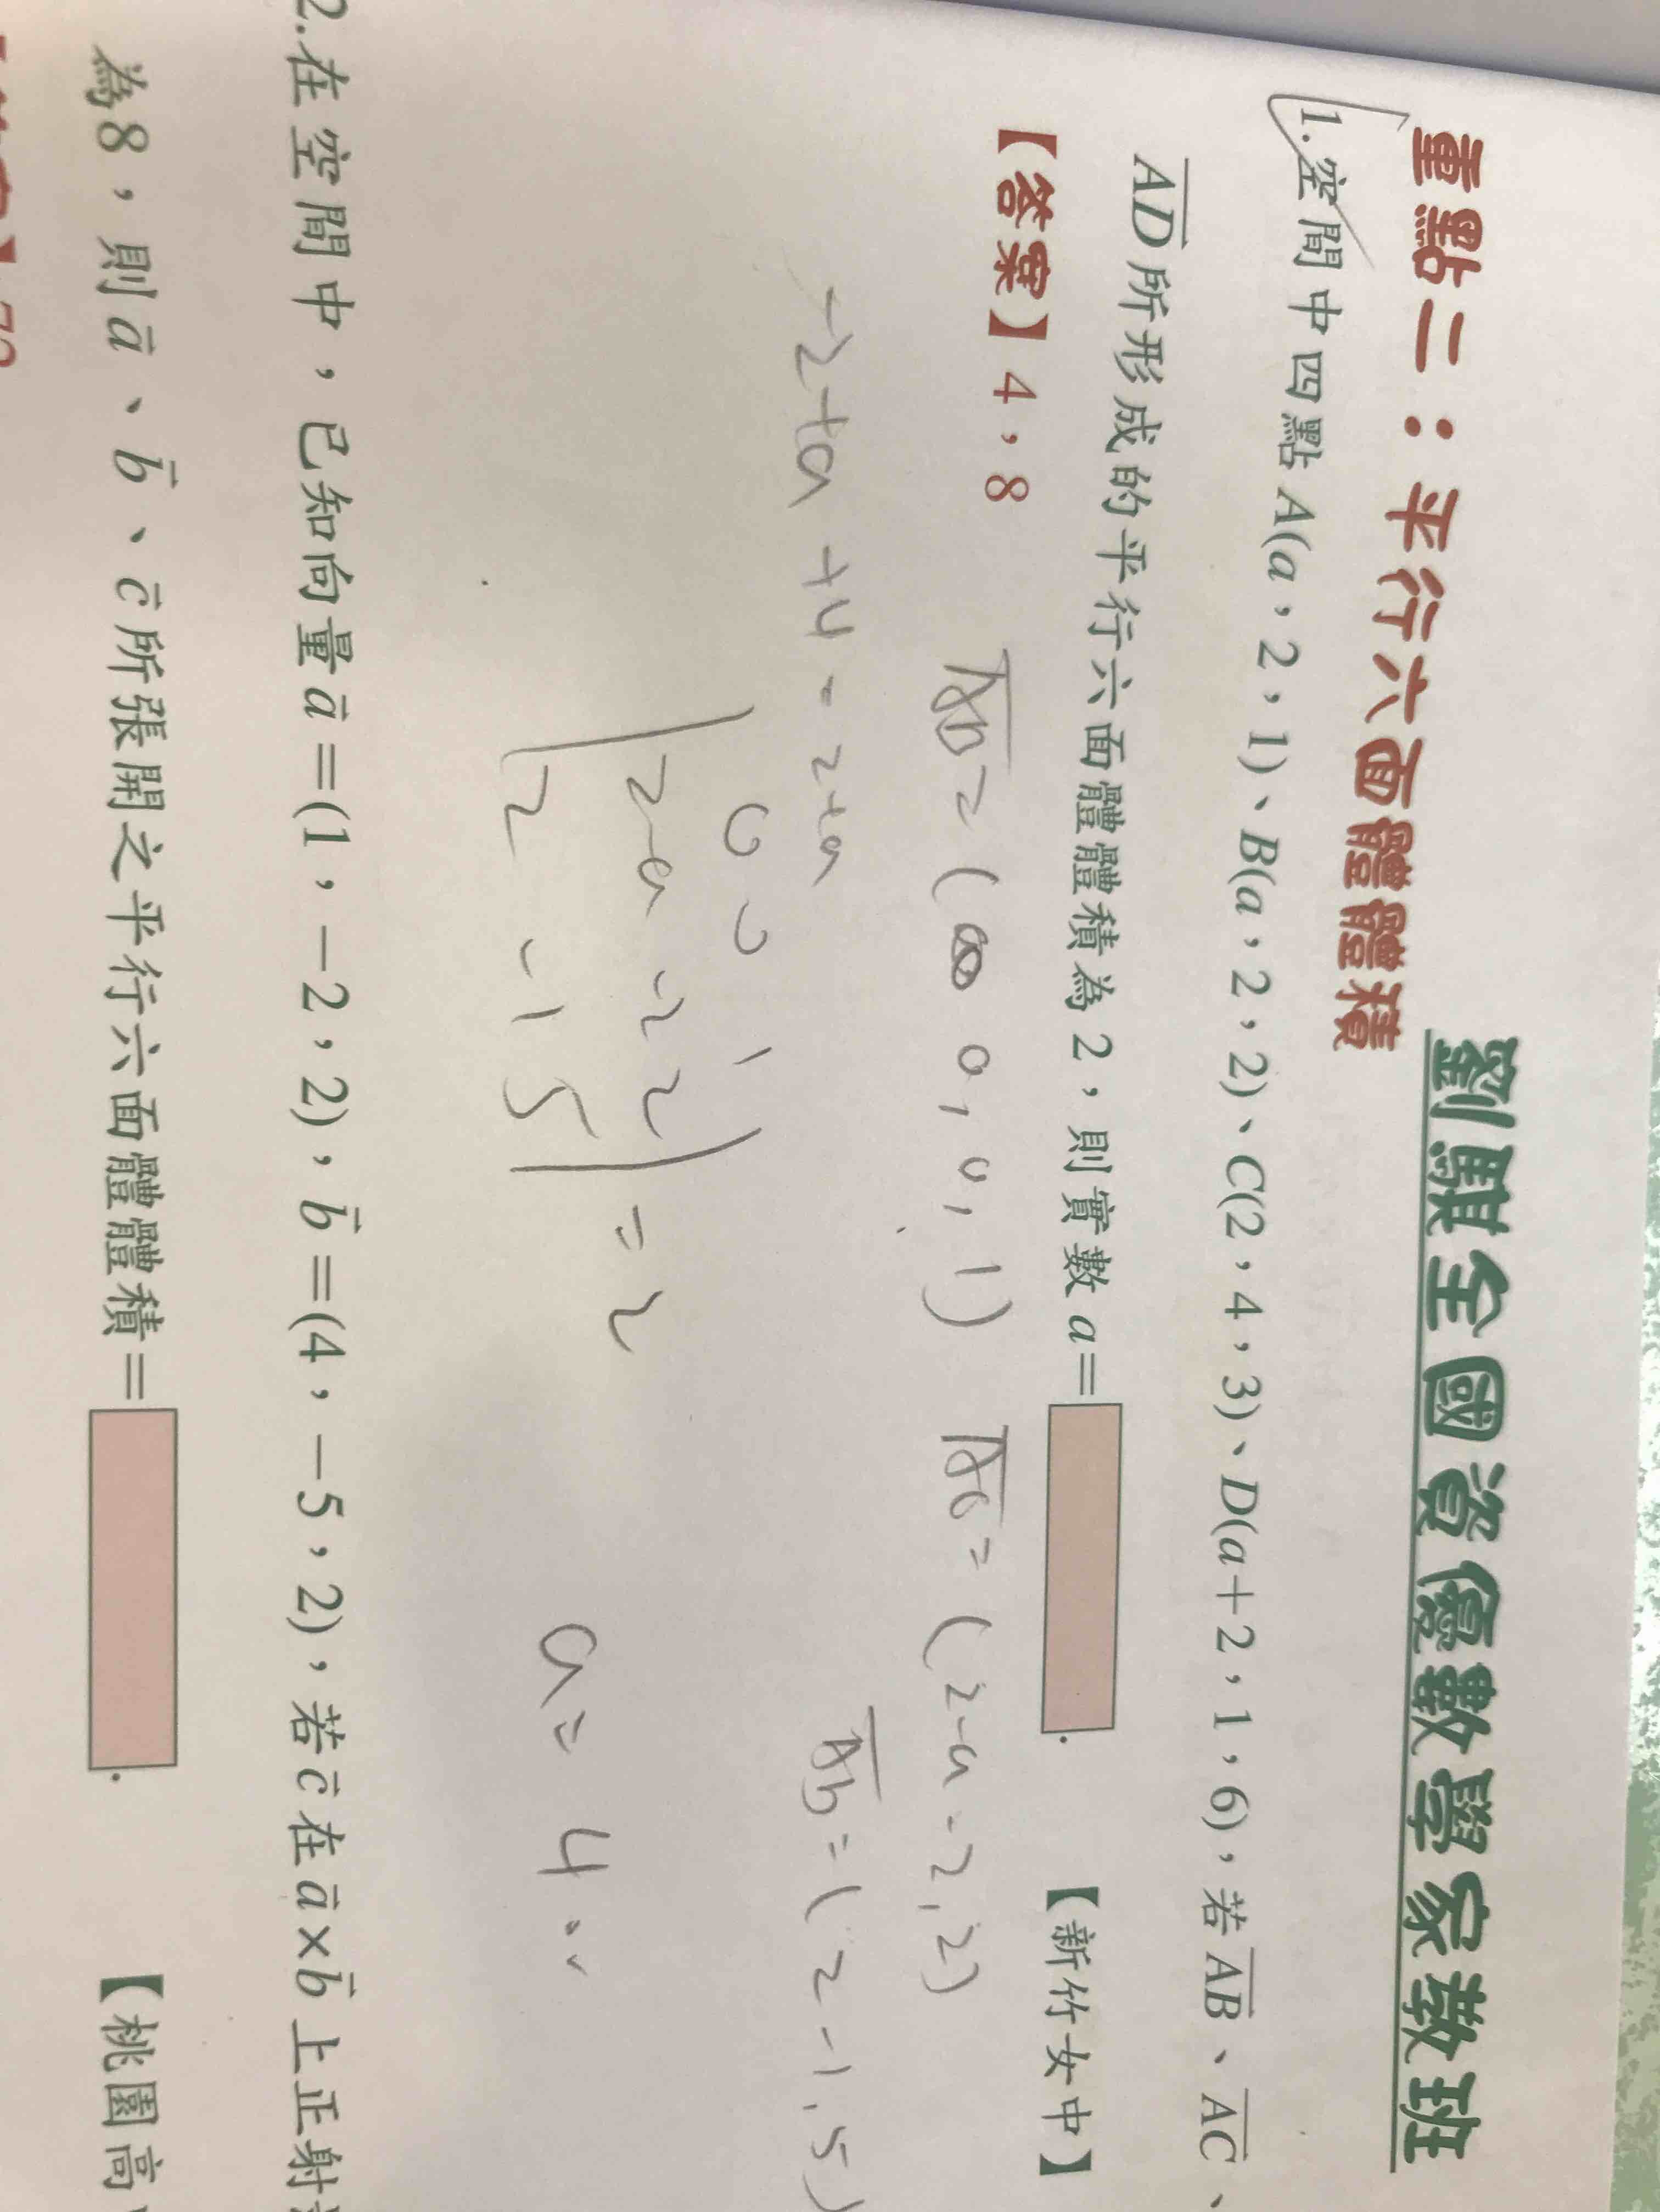 劉騏全國資優數學家教班
重點二：平行六面體體積
1.空間中四點A(a，2，1)、B(a，2，2)、C(2，4，3)、D(a+2，1，6)，若AB、AC、
AD所形成的平行六面體體積為2，則實數a=
.
【新竹女中】
【答案】4，8
AB=( 0,0,1) AC=(2-a -2,2)
-2+a +4=2+a
AD=(2-1,5)
0 0 1
2-a -2 2
2 -1 5
=2
a=4
2.在空間中，已知向量a=(1，-2，2)，b=(4，-5，2)，若c在a×b上正射
為8，則a、b、c所張開之平行六面體體積=
.
【桃園高
72